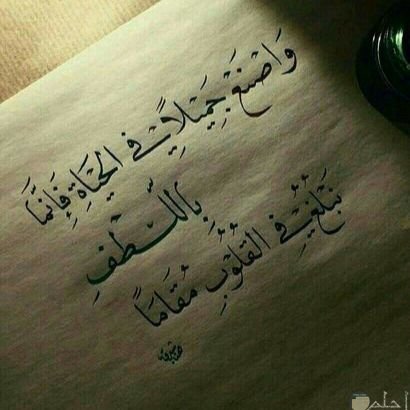 وَاصْنَعْ جَمِيْلًا فِي الْحَيَاةِ فَإِنَّمَا
بِاللُّطْفِ
نَبْلُغُ فِي الْقُلُوْبِ مُقَامَا
أحلم